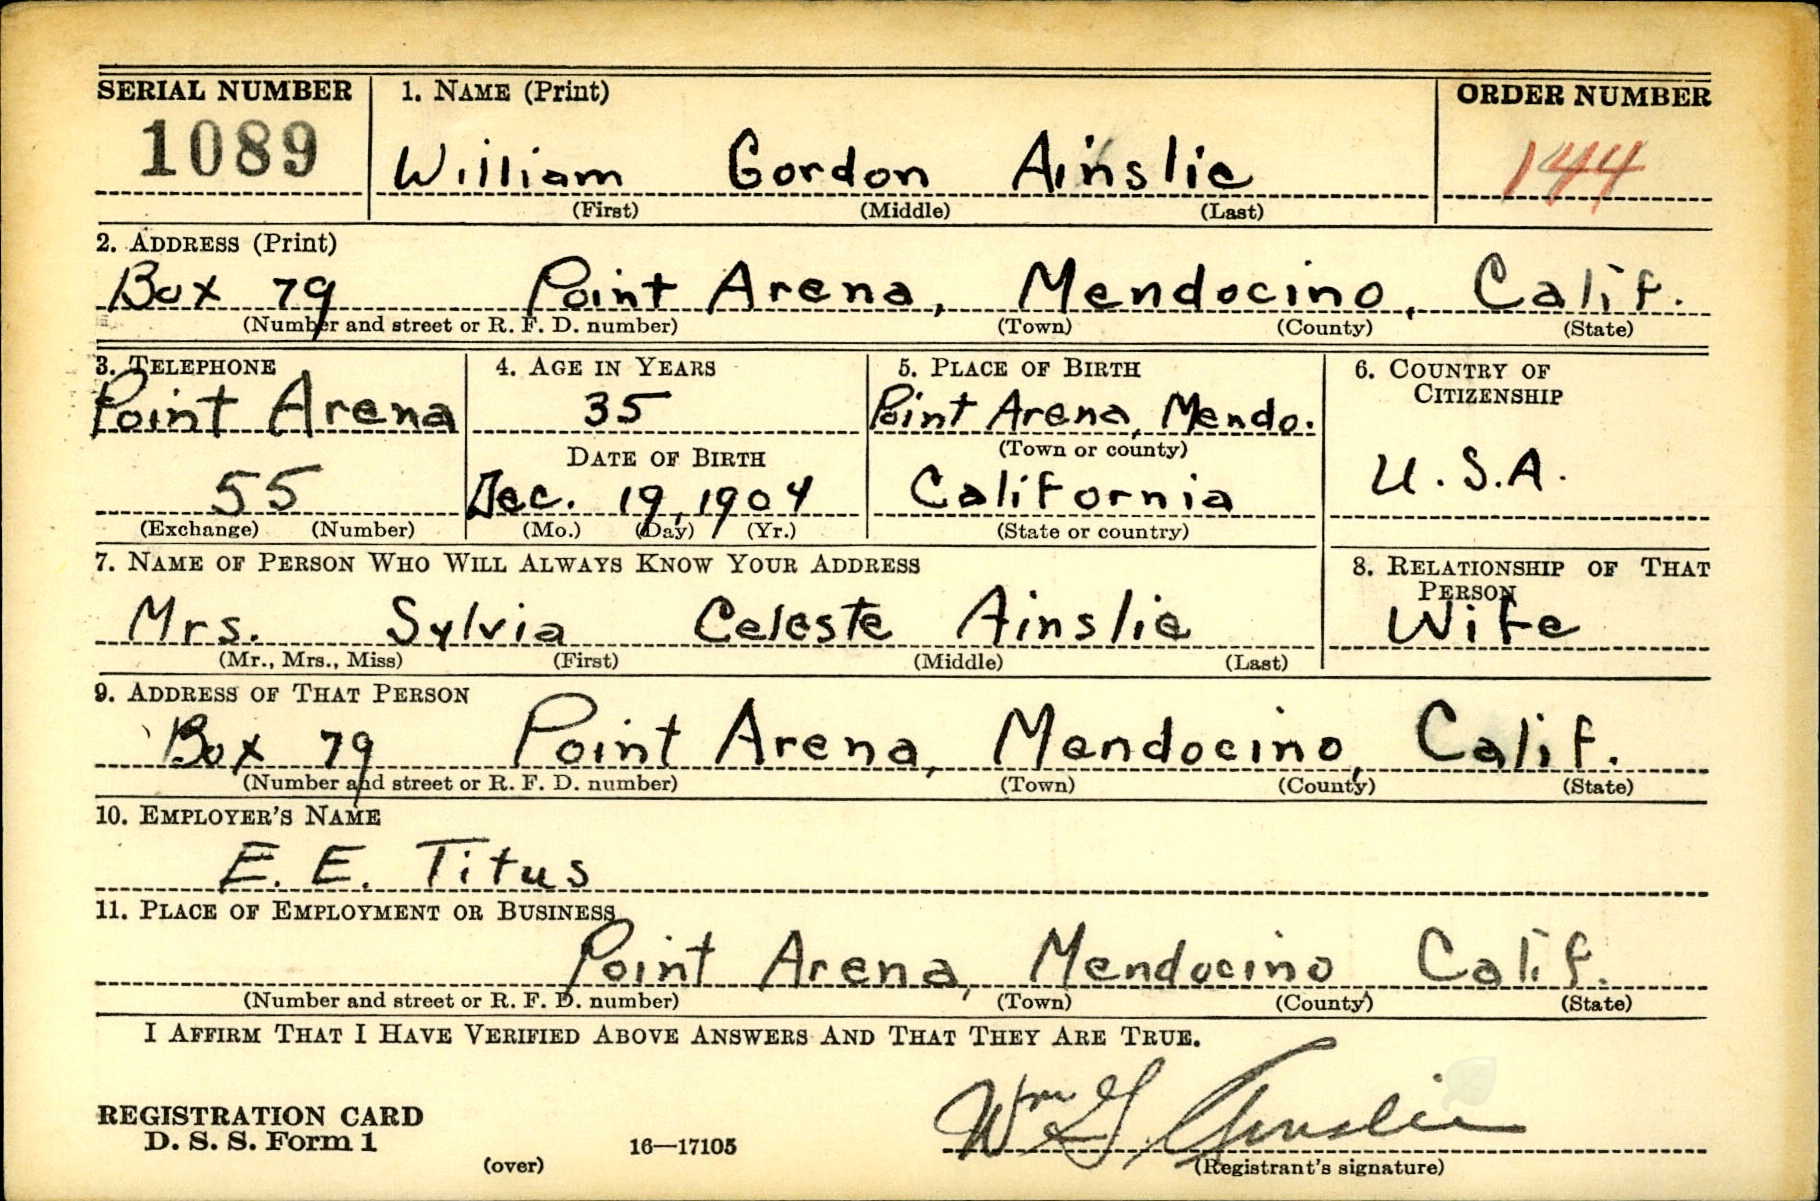 SERIAL NUMBER 1. NAME (Print) ORDER NUMBER
1089 William Gordon Ainslie 144
(First) (Middle) (Last)
2. ADDRESS (Print)
Box 79 Point Arena, Mendocino, Calif.
(Number and street or R. F. D. number) (Town) (County) (State)
3. TELEPHONE 4. AGE IN YEARS 5. PLACE OF BIRTH 6. COUNTRY OF
CITIZENSHIP
Point Arena 35 Point Arena, Mendo.
DATE OF BIRTH (Town or county)
55 Dec. 19, 1904 California U.S.A.
(Exchange) (Number) (Mo.) (Day) (Yr.) (State or country)
7. NAME OF PERSON WHO WILL ALWAYS KNOW YOUR ADDRESS 8. RELATIONSHIP OF THAT
PERSON
Mrs. Sylvia Celeste Ainslie Wife
(Mr., Mrs., Miss) (First) (Middle) (Last)
9. ADDRESS OF THAT PERSON
Box 79 Point Arena, Mendocino, Calif.
(Number and street or R. F. D. number) (Town) (County) (State)
10. EMPLOYER'S NAME
E. E. Titus
11. PLACE OF EMPLOYMENT OR BUSINESS
Point Arena, Mendocino, Calif.
(Number and street or R. F. D. number) (Town) (County) (State)
I AFFIRM THAT I HAVE VERIFIED ABOVE ANSWERS AND THAT THEY ARE TRUE.
Wm G. Ainslie
REGISTRATION CARD
D. S. S. Form 1 16—17105
(over) (Registrant's signature)